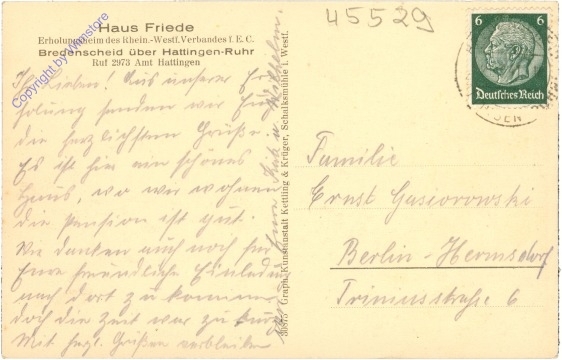 45529
Haus Friede
Erholungsheim des Rhein.-Westf. Verbandes f. E. C.
Bredenscheid über Hattingen-Ruhr
Ruf 2973 Amt Hattingen
Copyright by Wimstore
Ihr Lieben! Aus unserer Er-
holung senden wir Euch
die herzlichsten Grüße.
Es ist hier ein schönes
Haus, wo wir wohnen
die Pension ist gut.
Wir danken auch noch für
Eure freundliche Einladung
nach dort zu kommen
doch die Zeit war zu kurz
Mit herzl. Grüßen verbleiben
Eure u. Wilhelm.
30875 Graph. Kunstanstalt Kettling & Krüger, Schalksmühle i. Westf.
6 6
Deutsches Reich
Familie
Ernst Gasiorowski
Berlin-Hermsdorf
Trimusstraße 6